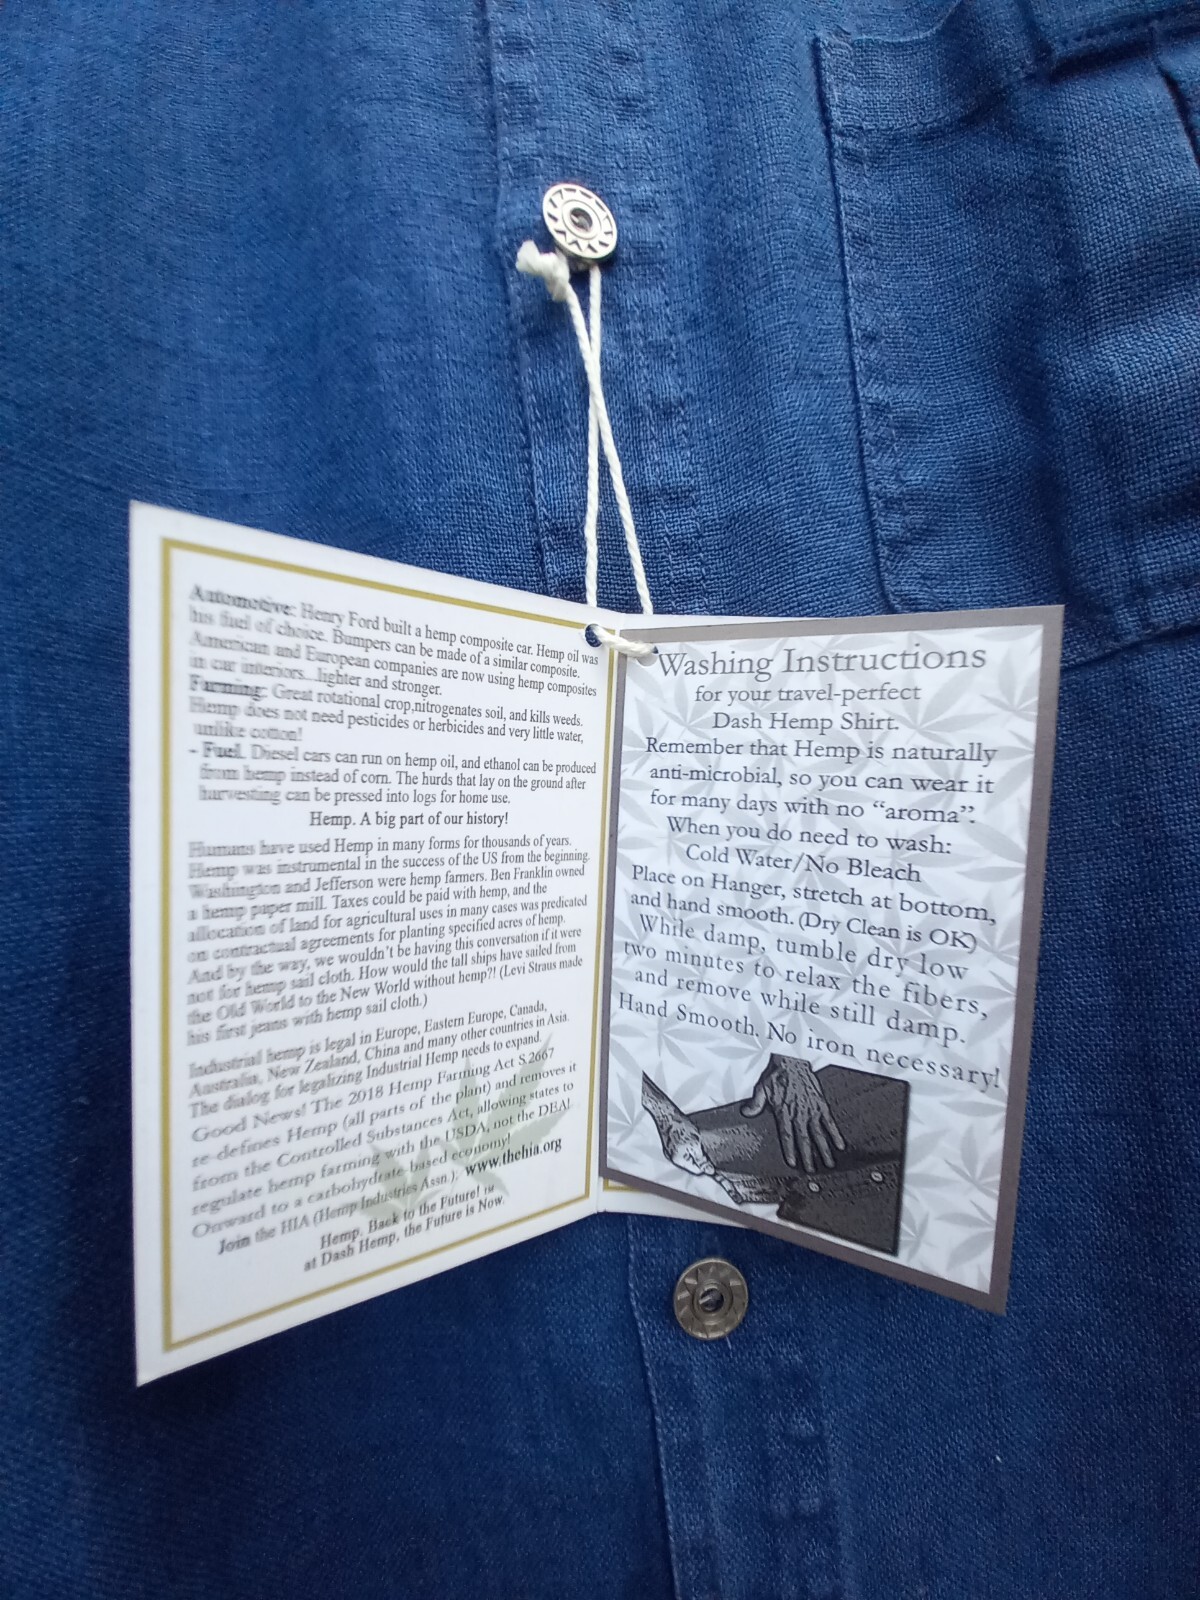 Automotive: Henry Ford built a hemp composite car. Hemp oil was
his fuel of choice. Bumpers can be made of a similar composite.
American and European companies are now using hemp composites
in car interiors...lighter and stronger.
Farming: Great rotational crop,nitrogenates soil, and kills weeds.
Hemp does not need pesticides or herbicides and very little water,
unlike cotton!
- Fuel. Diesel cars can run on hemp oil, and ethanol can be produced
from hemp instead of corn. The hurds that lay on the ground after
harvesting can be pressed into logs for home use.
Hemp. A big part of our history!
Humans have used Hemp in many forms for thousands of years.
Hemp was instrumental in the success of the US from the beginning.
Washington and Jefferson were hemp farmers. Ben Franklin owned
a hemp paper mill. Taxes could be paid with hemp, and the
allocation of land for agricultural uses in many cases was predicated
on contractual agreements for planting specified acres of hemp.
And by the way, we wouldn't be having this conversation if it were
not for hemp sail cloth. How would the tall ships have sailed from
the Old World to the New World without hemp?! (Levi Straus made
his first jeans with hemp sail cloth.)
Industrial hemp is legal in Europe, Eastern Europe, Canada,
Australia, New Zealand, China and many other countries in Asia.
The dialog for legalizing Industrial Hemp needs to expand.
Good News! The 2018 Hemp Farming Act S.2667
re-defines Hemp (all parts of the plant) and removes it
from the Controlled Substances Act, allowing states to
regulate hemp farming with the USDA, not the DEA!
Onward to a carbohydrate-based economy!
Join the HIA (Hemp Industries Assn.): www.thehia.org
Hemp. Back to the Future! ™
at Dash Hemp, the Future is Now.
Washing Instructions
for your travel-perfect
Dash Hemp Shirt.
Remember that Hemp is naturally
anti-microbial, so you can wear it
for many days with no “aroma”.
When you do need to wash:
Cold Water/No Bleach
Place on Hanger, stretch at bottom,
and hand smooth. (Dry Clean is OK)
While damp, tumble dry low
two minutes to relax the fibers,
and remove while still damp.
Hand Smooth. No iron necessary!